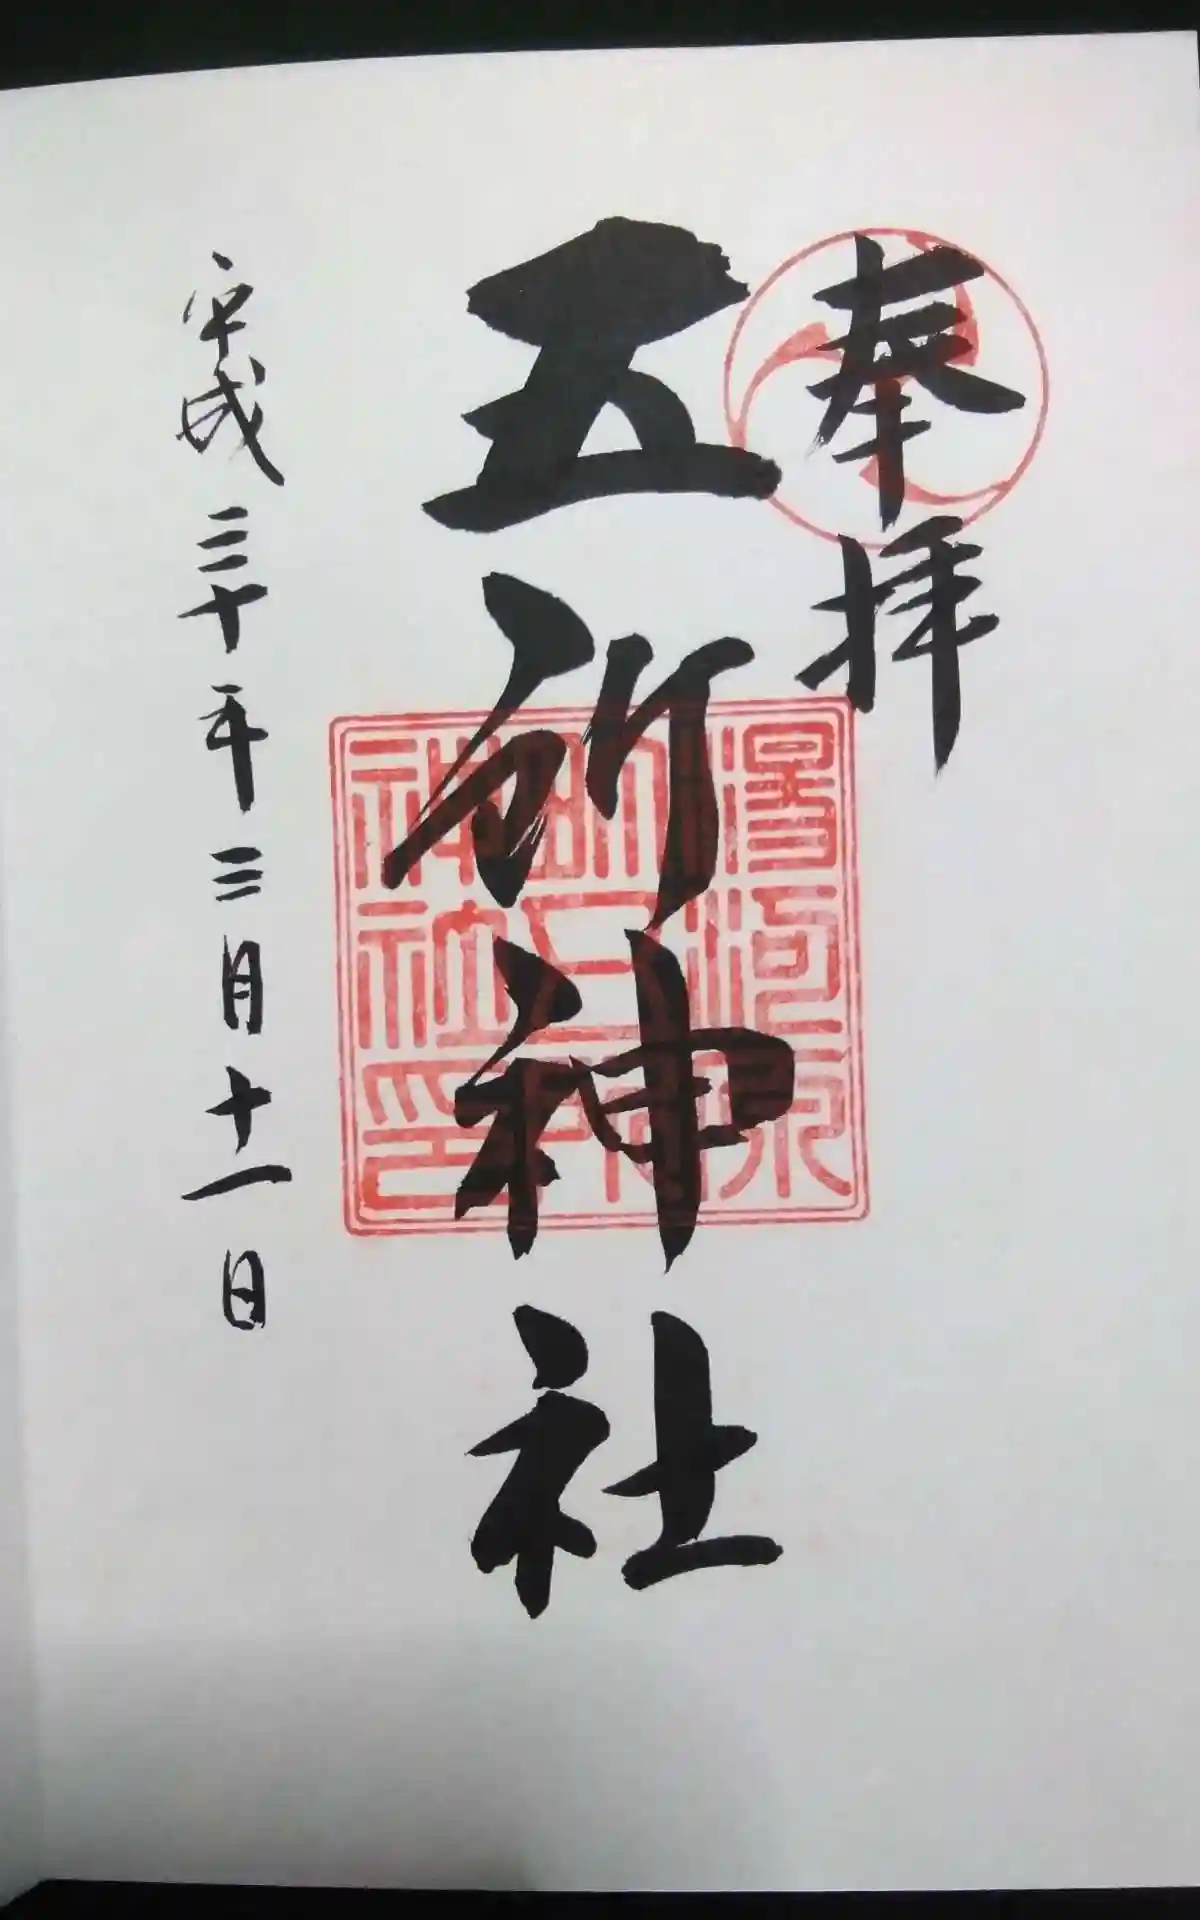 奉拝
五所神社
平成三十年三月十一日
湯河原
町五所
神社印